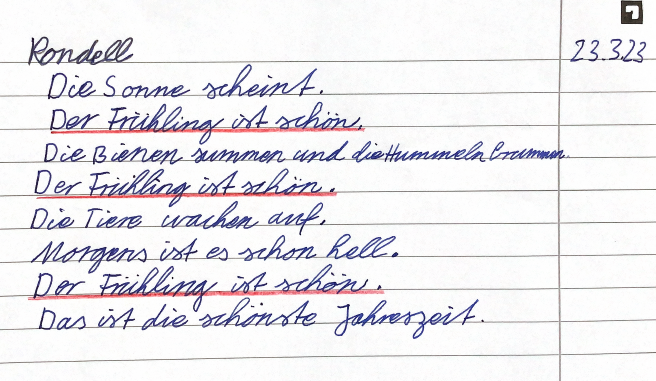 Rondell 23.3.23
Die Sonne scheint.
Der Frühling ist schön.
Die Bienen summen und die Hummeln brummen.
Der Frühling ist schön.
Die Tiere wachen auf.
Morgens ist es schon hell.
Der Frühling ist schön.
Das ist die schönste Jahreszeit.